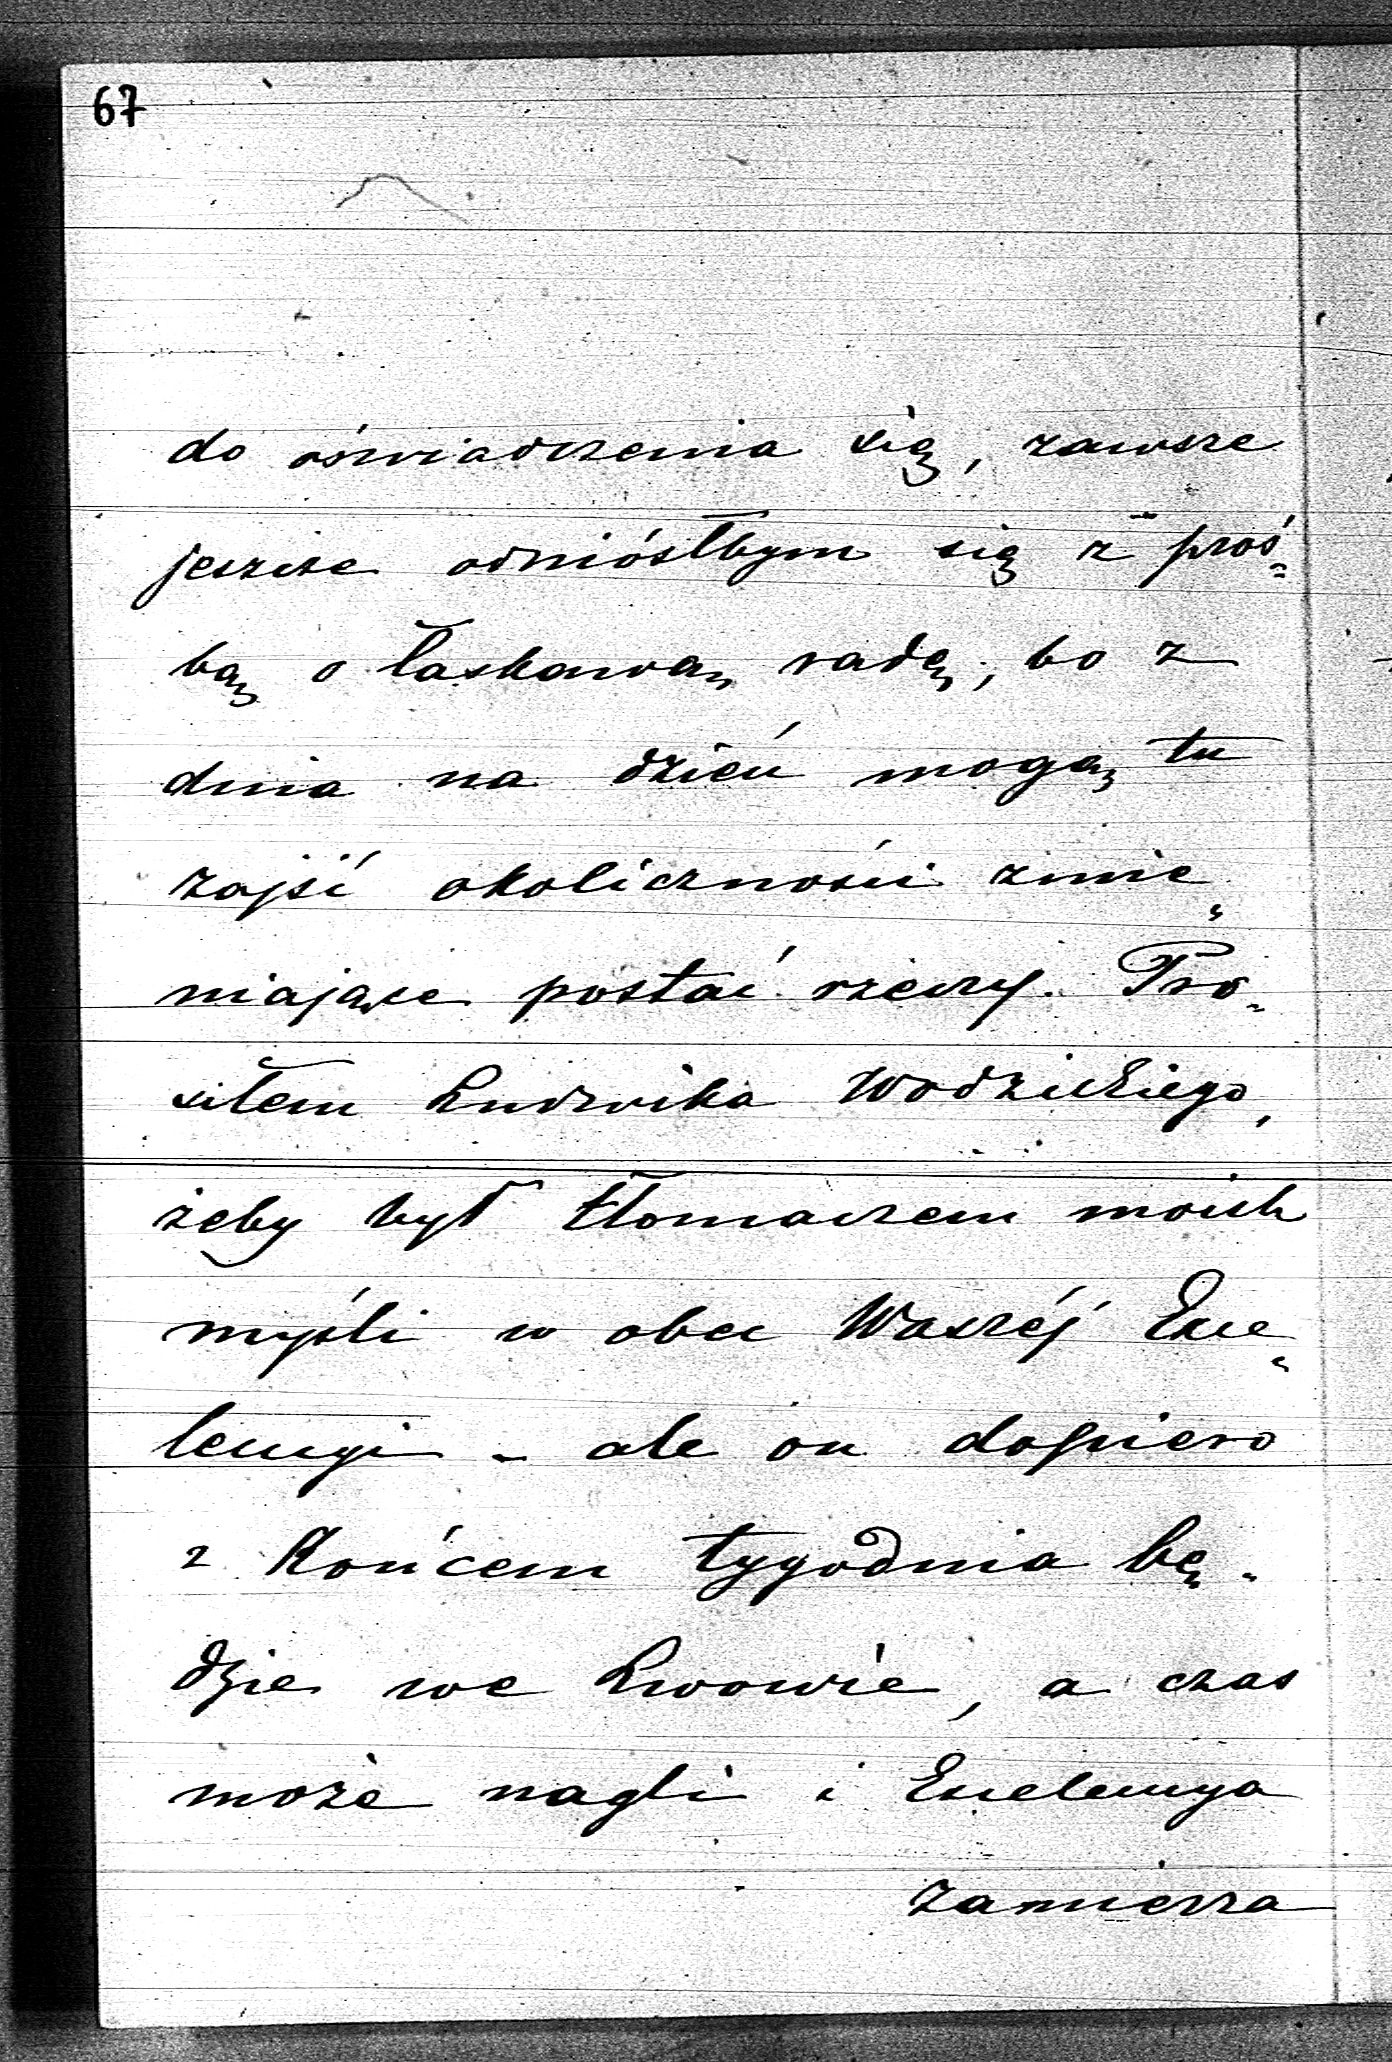 67
do oświadczenia się, zawsze
jeszcze odniósłbym się z proś=
bą o łaskawą radę; bo z
dnia na dzień mogą tu
zajść okoliczności zmie„
niające postać rzeczy. Pro=
siłem Ludwika Wodzickiego,
żeby był tłomaczem moich
myśli w obec Waszéj Exce„
lencyi – ale on dopiero
z końcem tygodnia bę=
dzie we Lwowie, a czas
może nagli i Excelencya
zamierza